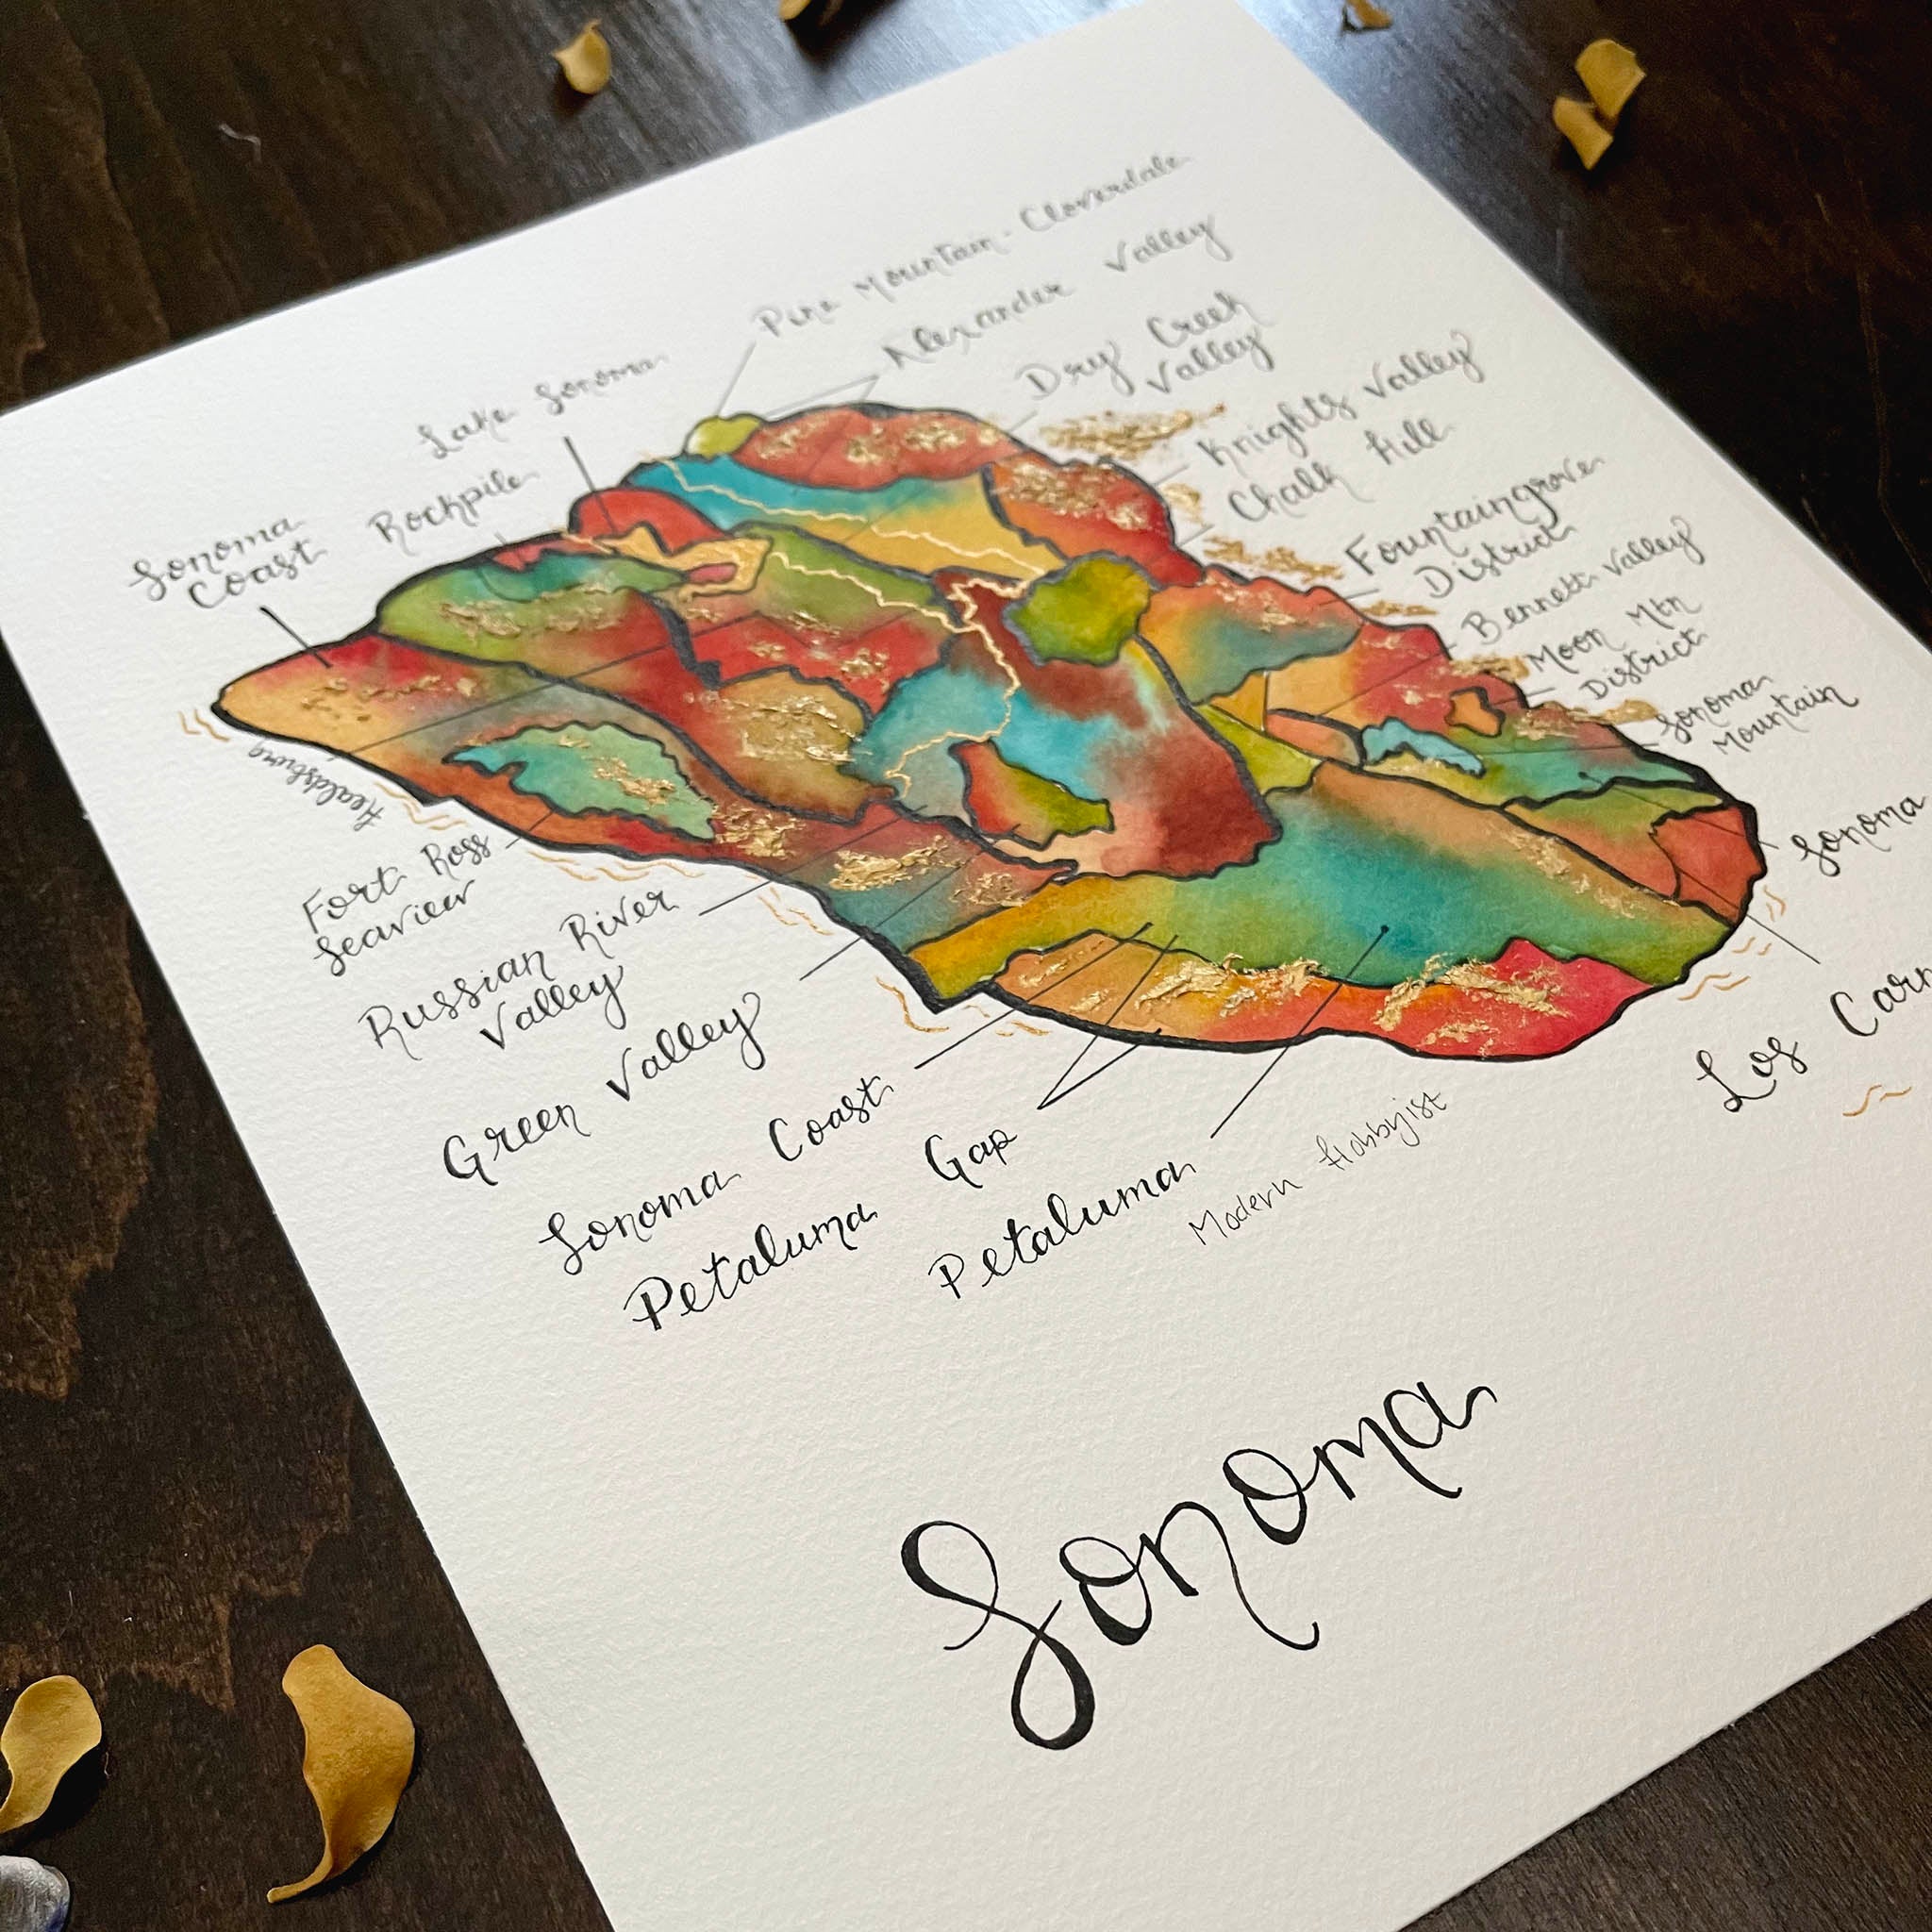 Pine Mountain - Cloverdale
Alexander Valley
Lake Sonoma
Dry Creek
Valley
Rockpile
Knights Valley
Chalk Hill
Sonoma
Coast
Fountaingrove
District
Bennett Valley
Moon Mtn
District
Sonoma
Mountain
Sonoma
Healdsburg
Fort Ross
Seaview
Russian River
Valley
Green Valley
Los
Sonoma Coast
Petaluma Gap
Petaluma
Modern Hobbyist
Sonoma